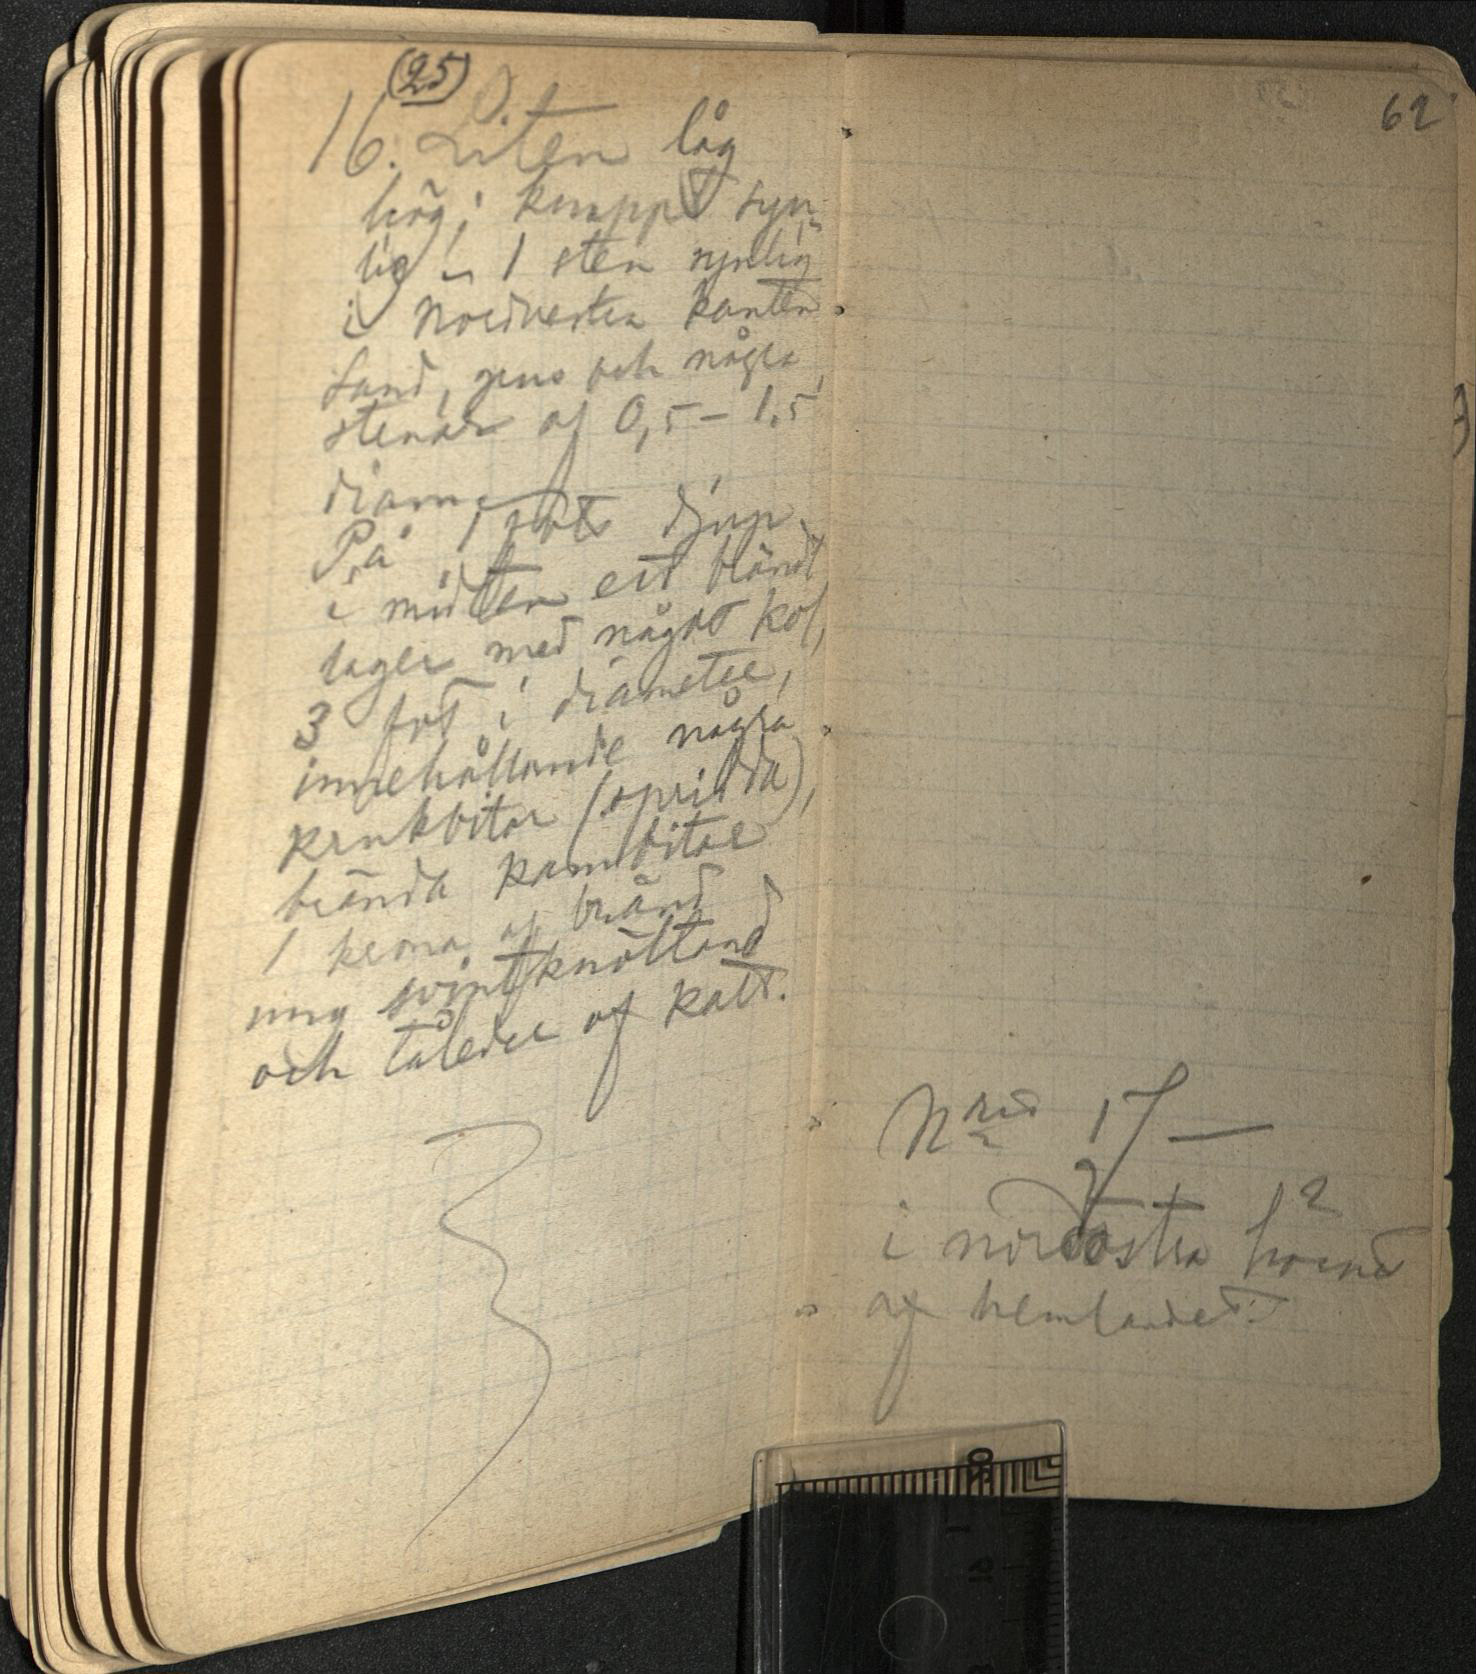 (25)
16. Liten låg
hög; knappt syn-
lig. – 1 sten synlig
i nordvestra kanten.
Sand, grus och några
stenar af 0,5 – 1,5
diam.
På 1 fots djup
i midten ett brändt
lager med något kol,
3 fot i diameter,
innehållande några
krukbitar (spridda),
brända kambitar
1 af bränd
ung svins knöltand
och tåleder af katt.
62
N:ris 17 –
i nordöstra hörnet
af hemlandet.